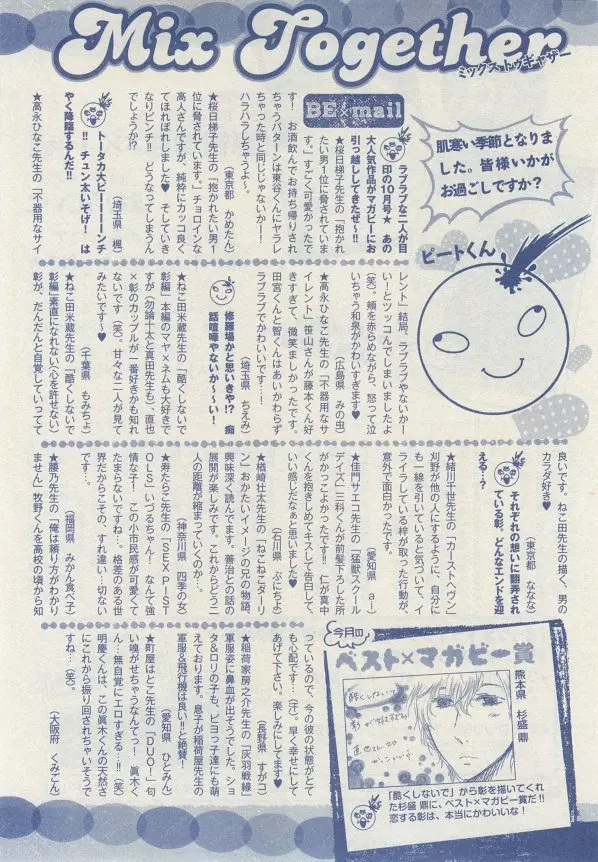 Mix Together
ミックス トゥギャザー
肌寒い季節となりま
した。皆様いかが
お過ごしですか?
ピートくん
BE×mail
ラブラブな二人が目
印の10月号★ あの
大人気作品がマガビーにお
引っ越ししてきたぜ〜!!
★桜日梯子先生の「抱かれ
たい男1位に脅されていま
す。」すごく可愛かったで
す! お酒飲んでお持ち帰りされ
ちゃうパターンは東谷くんにヤラレ
ちゃった時と同じじゃないかー!
ハラハラしちゃうよ〜。
(東京都 かめたん)
★桜日梯子先生の「抱かれたい男1
位に脅されています。」チョコインな
高人さんですが、純粋にカッコ良く
てほれぼれしました♥ そしていき
なりピンチ!! どうなってしまうん
でしょうか!?
(埼玉県 楓)
トータカ大ピーーーンチ
!! チュン太いそげ! は
やく降臨するんだ!!
★高永ひなこ先生の「不器用なサイ
レント」結局、ラブラブやないか―
い!とツッコんでしまいましたよ
(笑)。頬を赤らめながら、怒って泣
いちゃう和泉がかわいすぎます♥
(広島県 みの虫)
★高永ひなこ先生の「不器用なサ
イレント」笹山さんが藤本くん好
きすぎて、微笑ましかったです。
田宮くんと智くんはあいかわらず
ラブラブでかわいいです…!
(埼玉県 ちえみ)
修羅場かと思いきや!? 痴
話喧嘩やないか〜〜い!
★ねこ田米蔵先生の「酷くしないで
彰編」本編のマヤ×ネムも大好きで
すが(勿論十太と真田先生も)、直也
×彰のカップルが一番好きかも知れ
ないです(笑)。甘々な二人が見て
みたいです〜♥
(千葉県 もみちょ)
★ねこ田米蔵先生の「酷くしないで
彰編」素直になれない(心を許せない)
彰が、だんだんと自覚していってて
良いです。ねこ田先生の描く、男の
カラダ好き♥
(東京都 ななな)
それぞれの想いに翻弄され
ている彰。どんなエンドを迎
える…?
★緒川千世先生の「カーストヘヴン」
刈野が他の人にするように、自分に
も一線を引いていると気づいて、イ
ライラしている梓が取った行動が、
意外で面白かったです。
(愛知県 al)
★佳門サエコ先生の「猛獣スクール
デイズ」三科くんが前髪下ろした所
がかっこよかったです!! 仁が真中
くんを抱きしめてキスして告白して、
いい感じだなぁと思いました♥
(石川県 ぷにちよ)
★楢崎壮太先生の「ねこねこダーリ
ン」おかたいイメージの兄の物語、
興味深く読んでます。善治との話の
展開が楽しみです。これからどう二
人の距離が縮まっていくのか…。
(神奈川県 四季の女)
★寿たらこ先生の「SEX PIST
OLS」いづるちゃん! なんて強
情な子! この小市民感が可愛くて
たまらないですね…。格差のある世
界だからこその、すれ違い…切ない
です…。
(福岡県 みかん食べ子)
★腰乃先生の「俺は頼り方がわかり
ません」牧野くんを高校の頃から知
っているので、今の彼の状態がとて
も心配です…(汗)。早く幸せにして
あげて下さい。楽しみにしてます♥
(長野県 すがコ)
★稲荷家房之介先生の「灰羽戦線」
軍服姿に鼻血が出そうでした。ショ
タ&ロリの子も、ピヨっ子達にも萌
えております。息子が稲荷屋先生の
軍服&飛行機は良い!!と絶賛!
(愛知県 ひとみん)
★町屋はとこ先生の「DUO!」匂
い嗅がせちゃうなんてっ! 眞木く
ん…無自覚にエロすぎる…!!(笑)
明慶くんは、この眞木くんの天然さ
にこれから振り回されちゃいそうで
すね…(笑)。
(大阪府 くみごん)
今月の
ベスト×マガビー賞
熊本県 杉盛 鼎
酷くしないで
「酷くしないで」から彰を描いてくれ
た杉盛 鼎に、ベスト×マガビー賞だ!!
恋する彰は、本当にかわいいな!